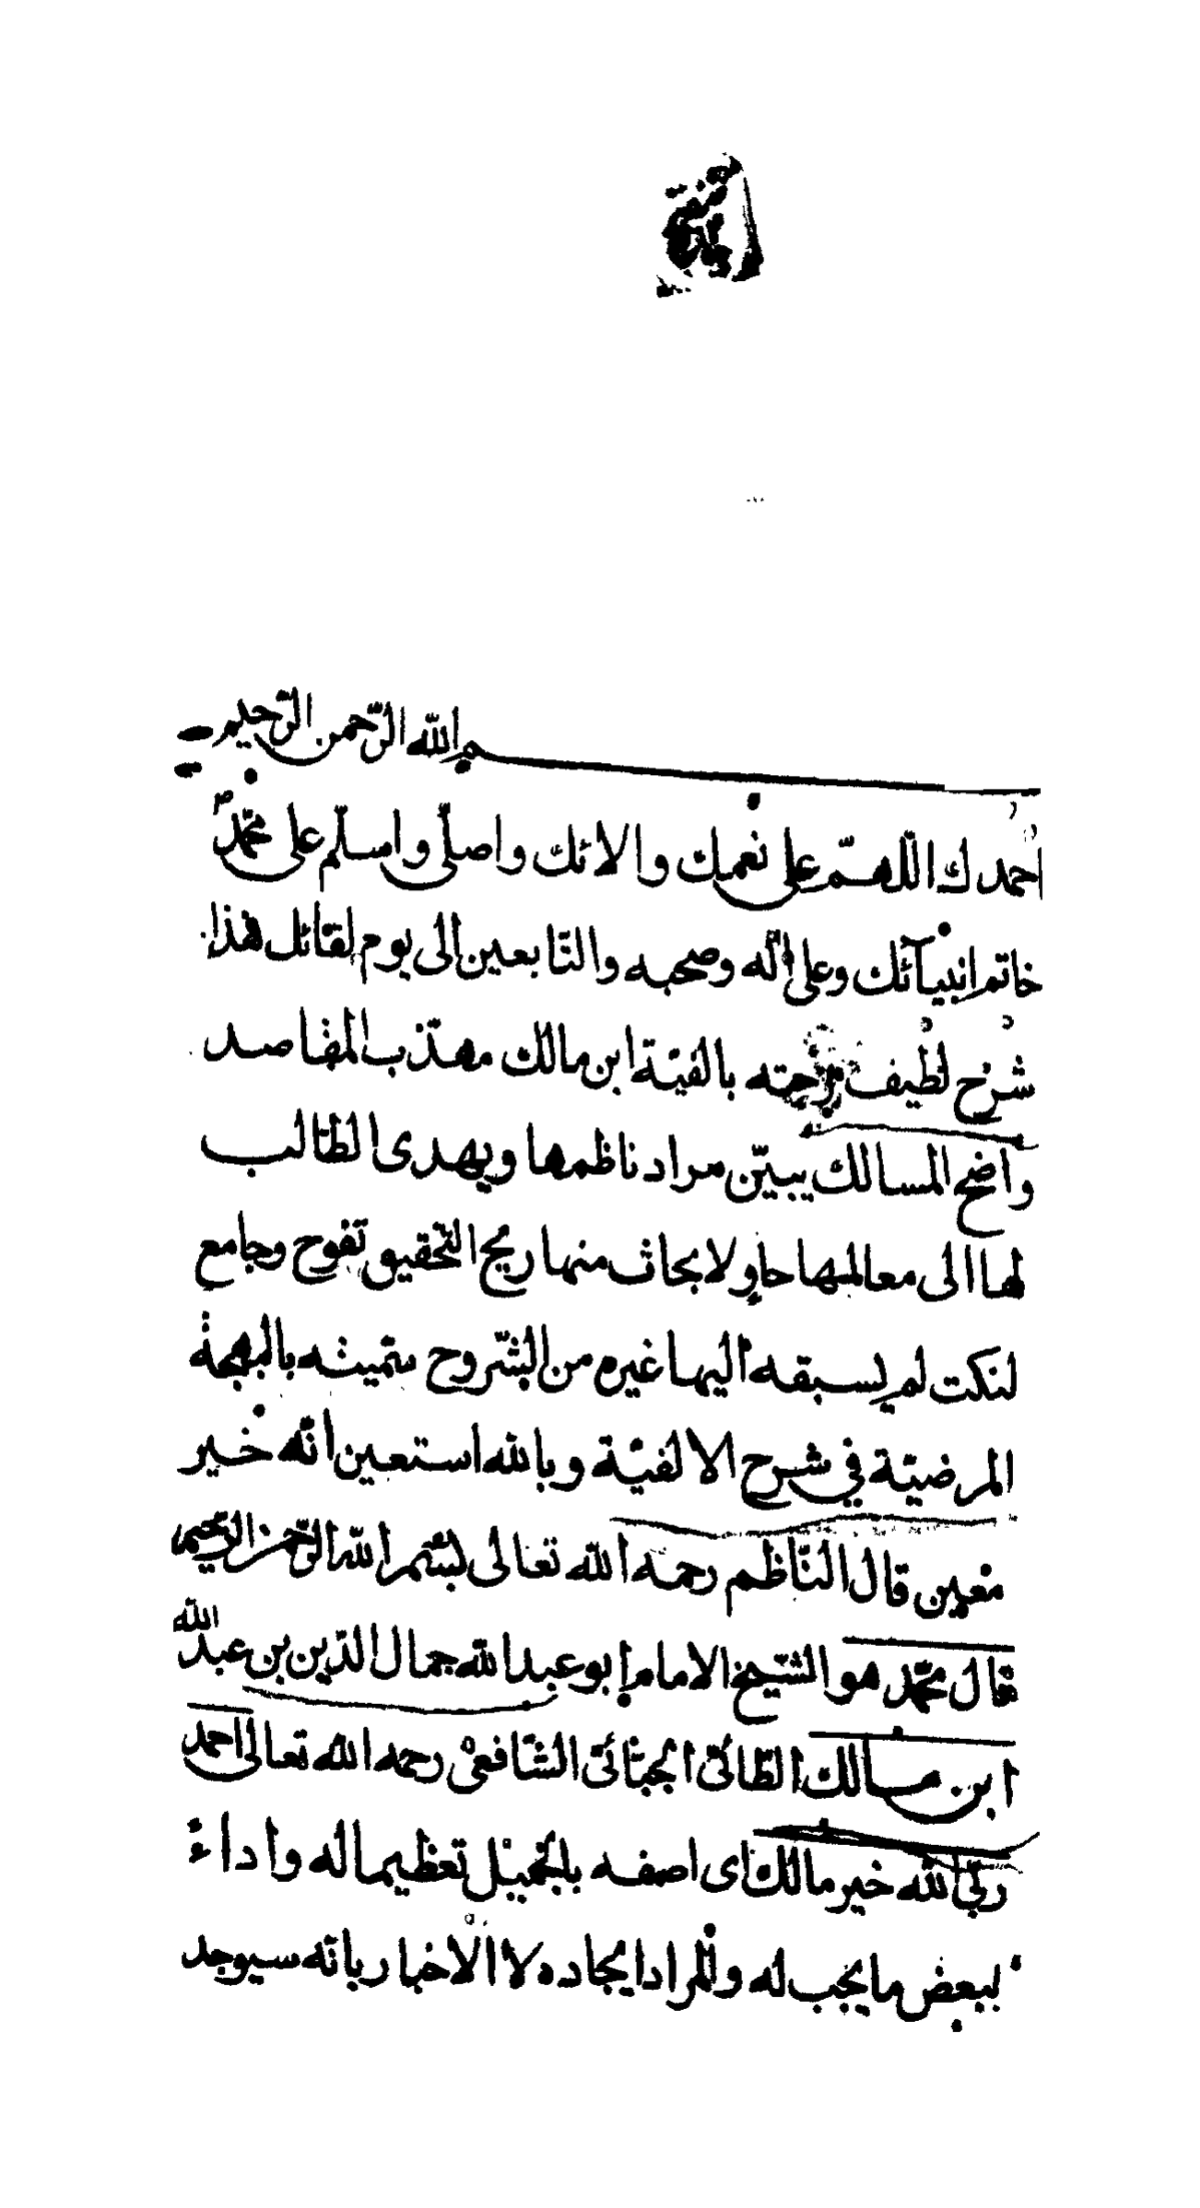 بسم الله الرحمن الرحيم
احمدك اللهم على نعمك والائك واصلى واسلم على محمد
خاتم انبيآئك وعلى اله وصحبه والتابعين الى يوم لقائك هذا
شرح لطيف مزجته بالفية ابن مالك مهذب المقاصد
واضح المسالك يبين مراد ناظمها ويهدى الطالب
لها الى معالمها حاو لابحاث منها ريح التحقيق تفوح وجامع
لنكت لم يسبقه اليها غيره من الشروح سميته بالبهجة
المرضية في شرح الالفية وبالله استعين انه خير
معين قال الناظم رحمه الله تعالى بسم الله الرحمن الرحيم
قال محمد هو الشيخ الامام ابو عبد الله جمال الدين بن عبد الله
ابن مالك الطائى الجيائى الشافعى رحمه الله تعالى احمد
ربى الله خير مالك اى اصفه بالجميل تعظيما له واداء
لبعض ما يجب له والمراد ايجاده لا الاخبار بانه سيوجد